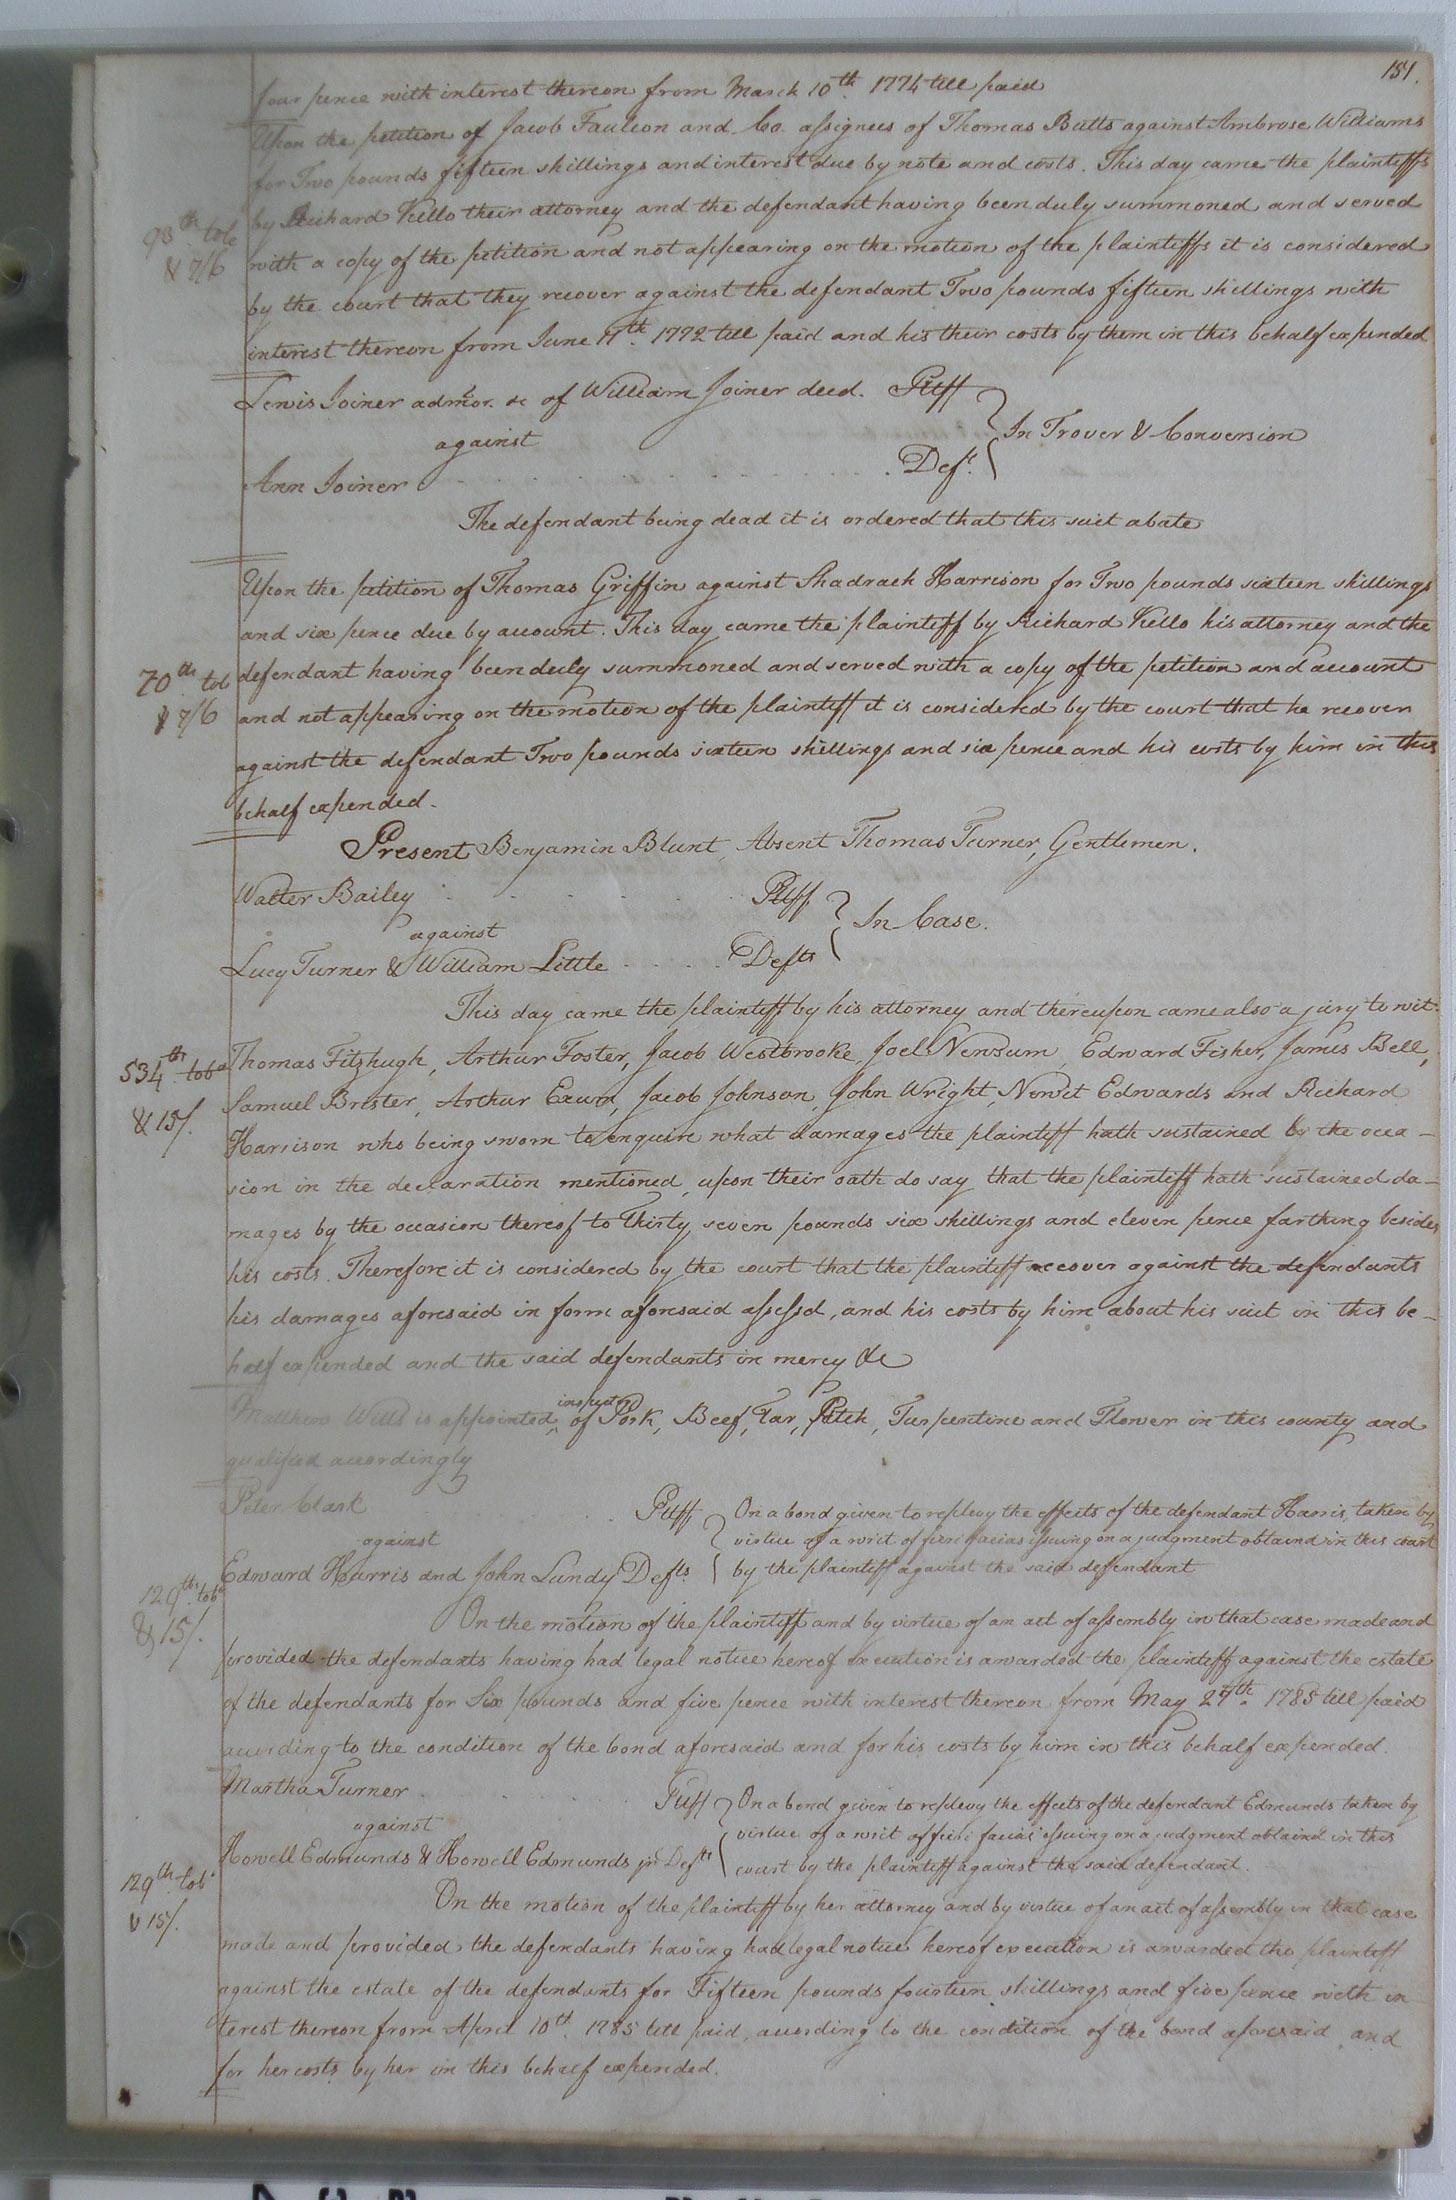 151.
four pence with interest thereon from March 10th. 1774 till paid
Upon the petition of Jacob Faulcon and Co. assignees of Thomas Butts against Ambrose Williams
for Two pounds fifteen shillings and interest due by note and costs. This day came the plaintiffs
by Richard Kello their attorney and the defendant having been duly summoned and served
93th tob
with a copy of the petition and not appearing on the motion of the plaintiffs it is considered
& 7/6
by the court that they recover against the defendant Two pounds fifteen shillings with
interest thereon from June 11th. 1772 till paid and his their costs by them in this behalf expended
Lewis Joiner admor. &c of William Joiner decd. Pltff
against
In Trover & Conversion
Ann Joiner . . . . . . . . . Deft.
The defendant being dead it is ordered that this suit abate
Upon the petition of Thomas Griffin against Shadrach Harrison for Two pounds sixteen shillings
and six pence due by account. This day came the plaintiff by Richard Kello his attorney and the
70th tob
defendant having been duly summoned and served with a copy of the petition and account
& 7/6
and not appearing on the motion of the plaintiff it is considered by the court that he recover
against the defendant Two pounds sixteen shillings and six pence and his costs by him in this
behalf expended.
Present Benjamin Blunt, Absent Thomas Turner, Gentlemen.
Walter Bailey . . . . . . Pltff
against
In Case.
Lucy Turner & William Little . . . . Defts
This day came the plaintiff by his attorney and thereupon came also a jury to wit.
534th. tobo
Thomas Fitzhugh, Arthur Foster, Jacob Westbrooke, Joel Newsum, Edward Fisher, James Bell,
& 15/.
Samuel Brister, Arthur Exum, Jacob Johnson, John Wright, Newit Edwards and Richard
Harrison who being sworn to enquire what damages the plaintiff hath sustained by the occa-
sion in the declaration mentioned, upon their oath do say that the plaintiff hath sustained da-
mages by the occasion thereof to Thirty seven pounds six shillings and eleven pence farthing besides
his costs. Therefore it is considered by the court that the plaintiff recover against the defendants
his damages aforesaid in form aforesaid assessd, and his costs by him about his suit in this be-
half expended and the said defendants in mercy &c
inspector
Matthew Wills is appointed ^ of Pork, Beef, Tar, Pitch, Turpentine and Flower in this county and
qualified accordingly
Peter Clark . . . Pltff
On a bond given to replevy the effects of the defendant Harris, taken by
against
virtue of a writ of fieri facias issuing on a judgment obtaind in this court
Edward Harris and John Lundy Defts.
by the plaintiff against the said defendant
129th. tobo
& 15/.
On the motion of the plaintiff and by virtue of an act of assembly in that case made and
provided the defendants having had legal notice hereof execution is awarded the plaintiff against the estate
of the defendants for Six pounds and five pence with interest thereon from May 27th. 1785 till paid
according to the condition of the bond aforesaid and for his costs by him in this behalf expended.
Martha Turner . . . . . Pltff
On a bond given to replevy the effects of the defendant Edmunds taken by
against
virtue of a writ of fieri facias issuing on a judgment obtaind in this
Howell Edmunds & Howell Edmunds jr Defts
court by the plaintiff against the said defendant.
129th. tobo
& 15/.
On the motion of the plaintiff by her attorney and by virtue of an act of assembly in that case
made and provided the defendants having had legal notice hereof execution is awarded the plaintiff
against the estate of the defendants for Fifteen pounds fourteen shillings and five pence with in
terest thereon from April 10th. 1785 till paid, according to the condition of the bond aforesaid and
for her costs by her in this behalf expended.